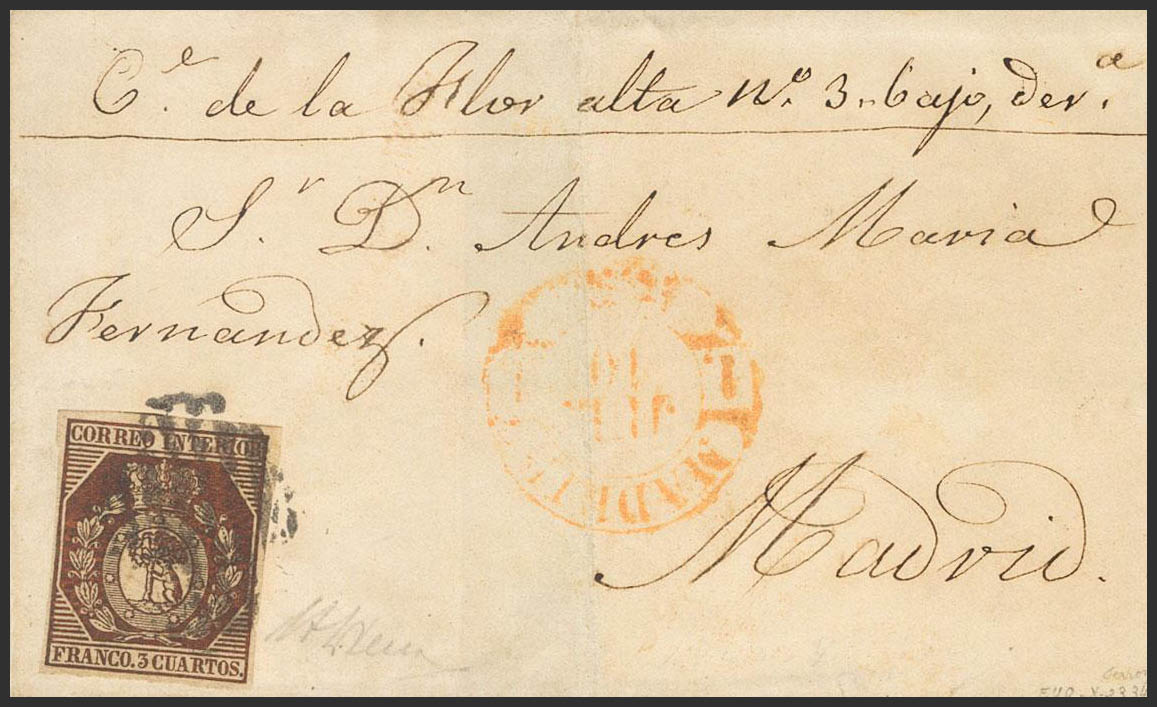 C.e de la Flor alta Nº. 3. bajo, der.a
S.r D.n Andres Maria
Fernandez.
Madrid.
CORREO INTERIOR
FRANCO. 3 CUARTOS.